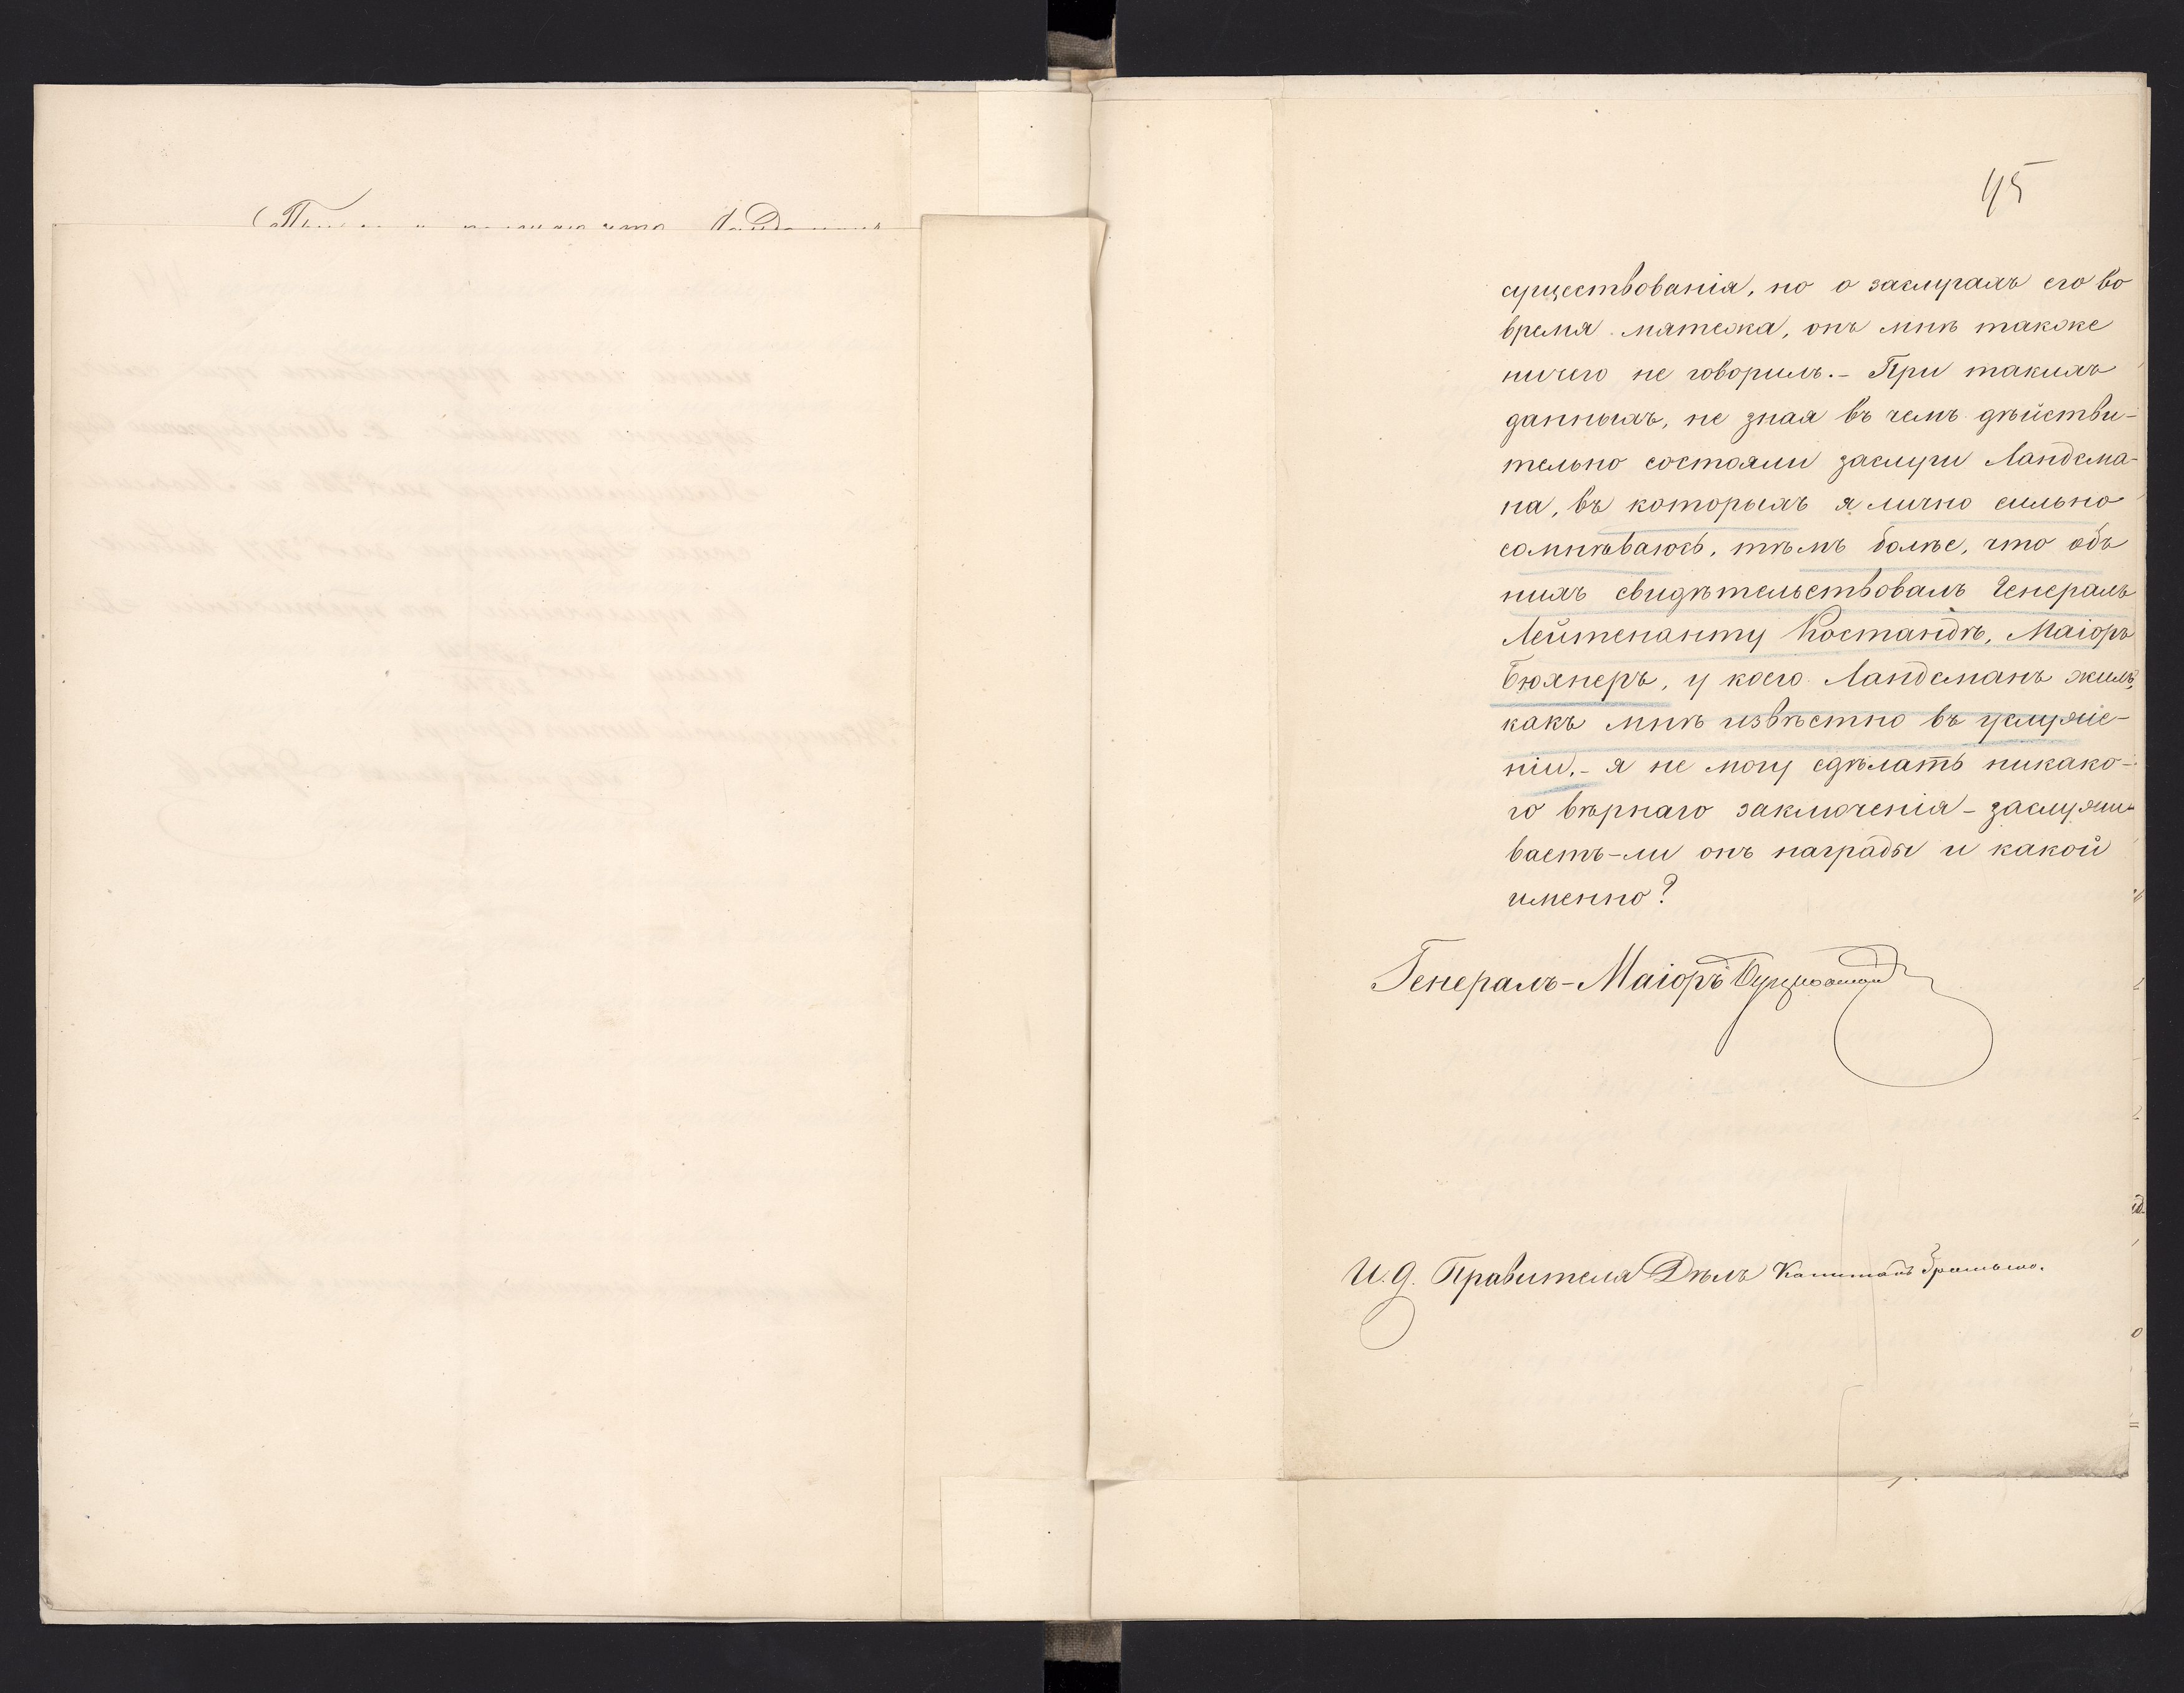 45
существованія, но о заслугахъ его во
время мятежа, онъ мнѣ также
ничего не говорилъ.- При такихъ
данныхъ, не зная въ чемъ дѣйстви-
тельно состояли заслуги Ландсма-
на, въ которыхъ я лично сильно
сомнѣваюсь, тѣмъ болѣе, что объ
нихъ свидѣтельствовалъ Генералъ
Лейтенанту Костандѣ, Маіоръ
Бюхнеръ, у коего Ландсманъ жилъ,
какъ мнѣ извѣстно въ услуже-
ніи.- я не могу сдѣлать никако-
го вѣрнаго заключенія - заслужи-
ваетъ-ли онъ награды и какой
именно?
Генералъ-Маіоръ
И. д. Правителя Дѣлъ Капитанъ